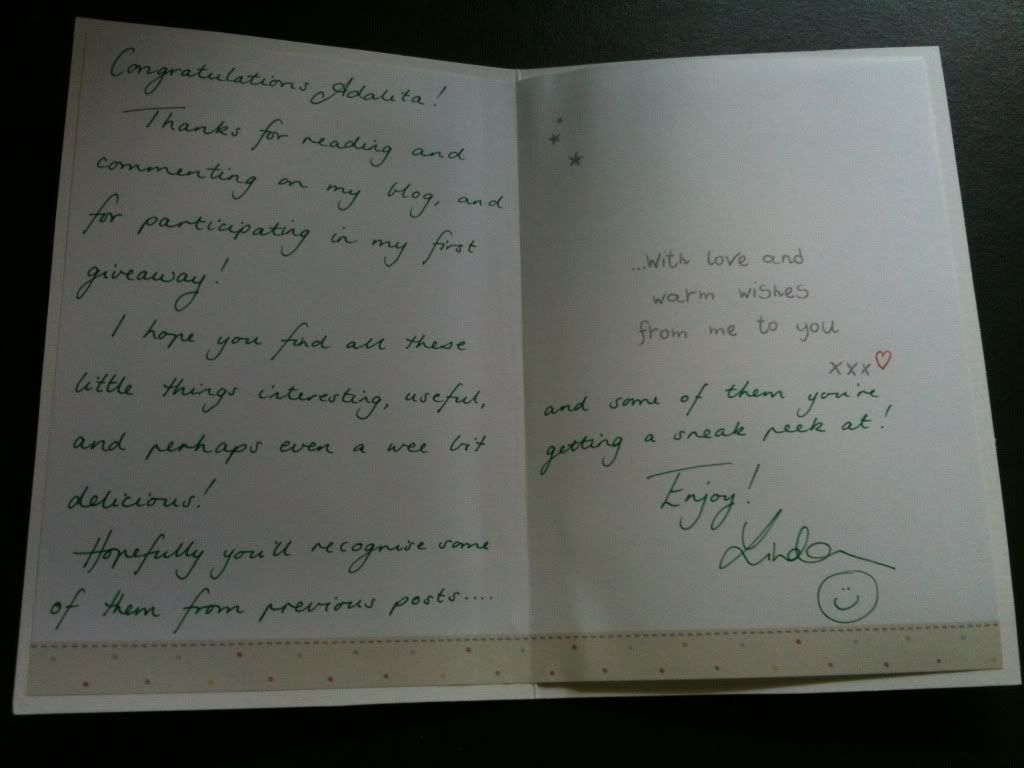 Congratulations Adalita!
Thanks for reading and
commenting on my blog, and
for participating in my first
giveaway!
I hope you find all these
little things interesting, useful,
and perhaps even a wee bit
delicious!
Hopefully you'll recognise some
of them from previous posts....
...With love and
warm wishes
from me to you
xxx
and some of them you're
getting a sneak peek at!
Enjoy!
Linda